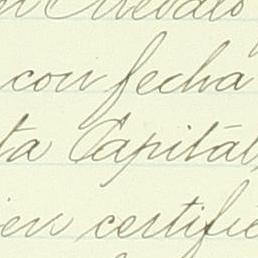 Arevalo
con fecha
ta Capitál,
ien certifi